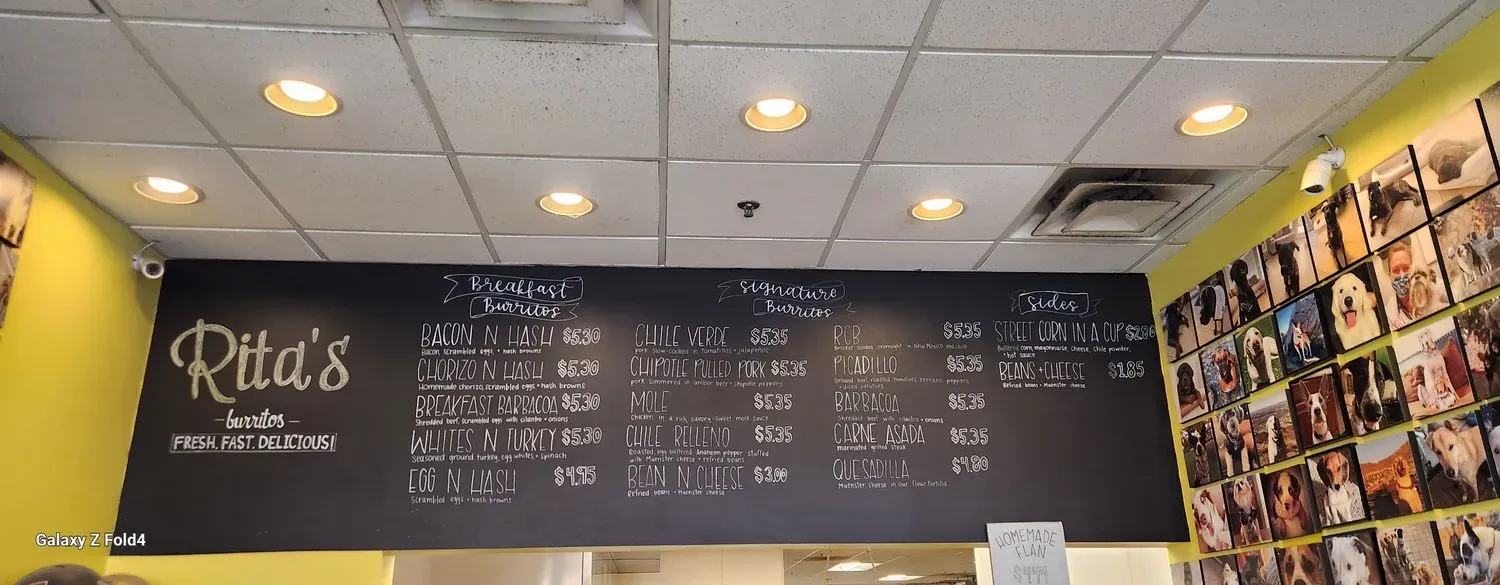 Rita's
burritos
FRESH. FAST. DELICIOUS!
Breakfast
Burritos
BACON N HASH $5.30
Bacon, scrambled eggs, + hash browns
CHORIZO N HASH $5.30
Homemade chorizo, scrambled eggs + hash browns
BREAKFAST BARBACOA $5.30
Shredded beef, scrambled eggs with cilantro + onions
WHITES N TURKEY $5.30
Seasoned ground turkey, egg whites + spinach
EGG N HASH $4.95
Scrambled eggs + hash browns
Signature
Burritos
CHILE VERDE $5.35
pork slow-cooked in tomatillos + jalapeños
CHIPOTLE PULLED PORK $5.35
pork simmered in amber beer + chipotle peppers
MOLE $5.35
Chicken in a rich, savory-sweet mole sauce
CHILE RELLENO $5.35
Roasted, egg battered Anaheim pepper stuffed
with Muenster cheese + refried beans
BEAN N CHEESE $3.00
Refried beans + Muenster cheese
RCB $5.35
Brisket cooked overnight in New Mexico red chile
PICADILLO $5.35
Ground beef, roasted tomatoes, serrano peppers
+ diced potatoes
BARBACOA $5.35
Shredded beef with cilantro + onions
CARNE ASADA $5.35
marinated grilled steak
QUESADILLA $4.80
Muenster cheese in our flour tortilla
Sides
STREET CORN IN A CUP $2.80
Buttered corn, mayonnaise, cheese, chile powder,
+ hot sauce
BEANS + CHEESE $1.85
Refried beans + Muenster cheese
HOMEMADE
FLAN
$4.99
Galaxy Z Fold4